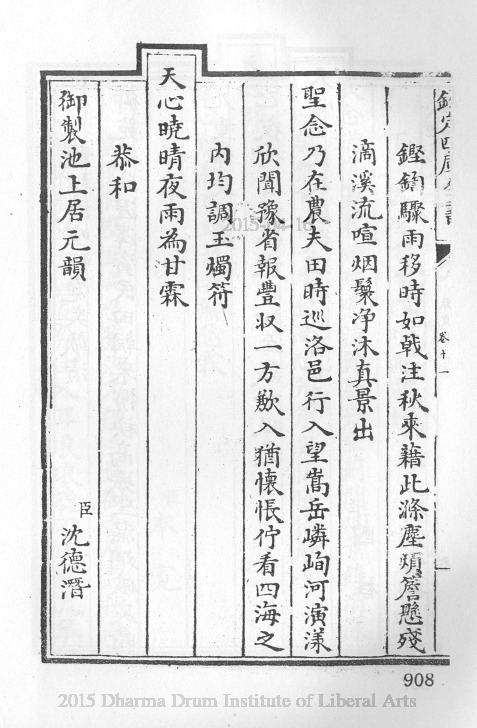 欽定四庫全書
卷十一
鏗鍧驟雨移時如戟注秋來藉此滌塵煩簷懸殘
滴溪流喧烟鬟净沐真景出
聖念乃在農夫田時巡洛邑行入望嵩岳嶙峋河演漾
欣聞豫省報豐収一方歉入猶懷悵佇看四海之
内均調玉燭符
天心曉晴夜雨為甘霖
恭和
御製池上居元韻
臣沈德潛
908
2015-04-16
2015 Dharma Drum Institute of Liberal Arts